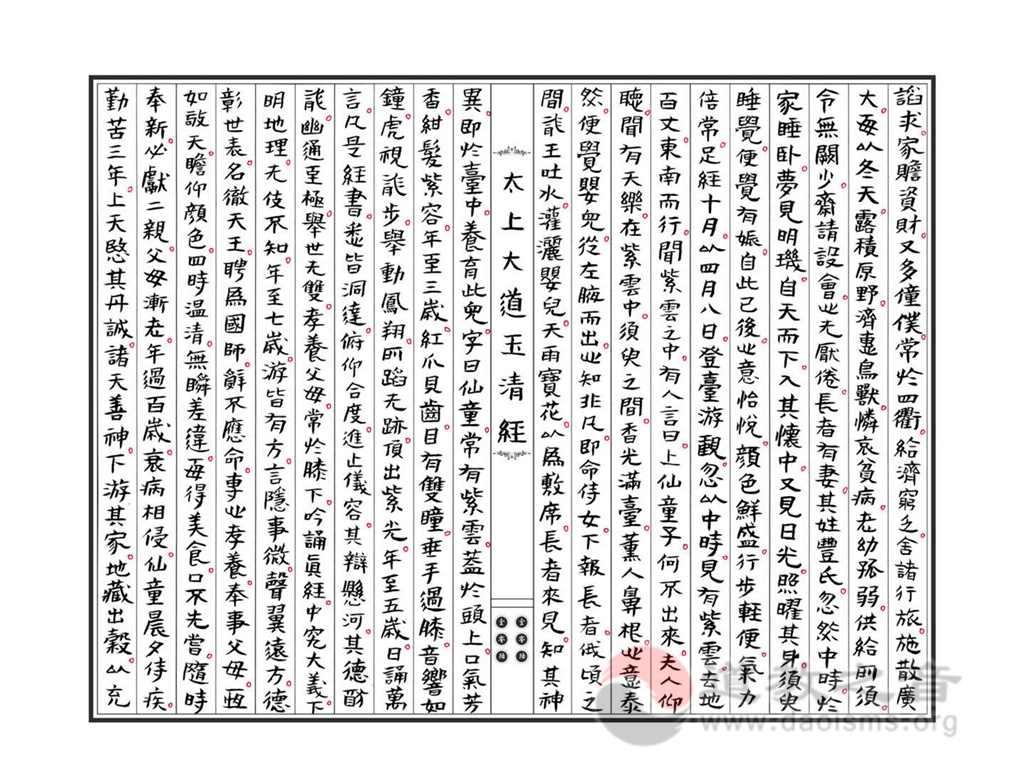 諂求家贍資財又多僮僕常於四衢給濟窮乏舍諸行旅施散廣
大每以冬天露積原野濟惠鳥獸憐哀貧病老幼孤弱供給所須
令無闕少齋請設會心无厭倦長者有妻其姓豐氏忽然中時於
家睡卧夢見明璣自天而下入其懷中又見日光照曜其身須臾
睡覺便覺有娠自此已後心意怡悅顏色鮮盛行步軽便氣力
倍常足經十月以四月八日登臺游觀忽以中時見有紫雲去地
百丈東南而行聞紫雲之中有人言曰上仙童子何不出來夫人仰
聽聞有天樂在紫雲中須臾之間香光滿臺薰人鼻根心意泰
然便覺嬰兒從左腋而出心知非凡即命侍女下報長者俄頃之
間龍王吐水灌灑嬰兒天雨寶花以為敷席長者來見知其神
太上大道玉清經
異即於臺中養育此兒字曰仙童常有紫雲蓋於頭上口氣芳
香紺髮紫容年至三歲紅爪貝齒目有雙瞳垂手過膝音響如
鐘虎視龍步舉動鳳翔所蹈无跡頂出紫光年至五歲日誦萬
言凡是經書悉皆洞達俯仰合度進止儀容其辯懸河其德
能幽通至極舉世无雙孝養父母常於膝下吟誦眞經中究大義下
明地理无伎不知年至七歲游皆有方言隱事微聲翼遠方德
彰世表名徹天王聘為國師辭不應命專心孝養奉事父母恒
如敬天瞻仰顏色四時温清無瞬差違每得美食口不先嘗隨時
奉新必獻二親父母漸老年過百歲衰病相侵仙童晨夕侍疾
勤苦三年上天愍其丹誠諸天善神下游其家地藏出穀以充
道教之音
www.daoisms.org